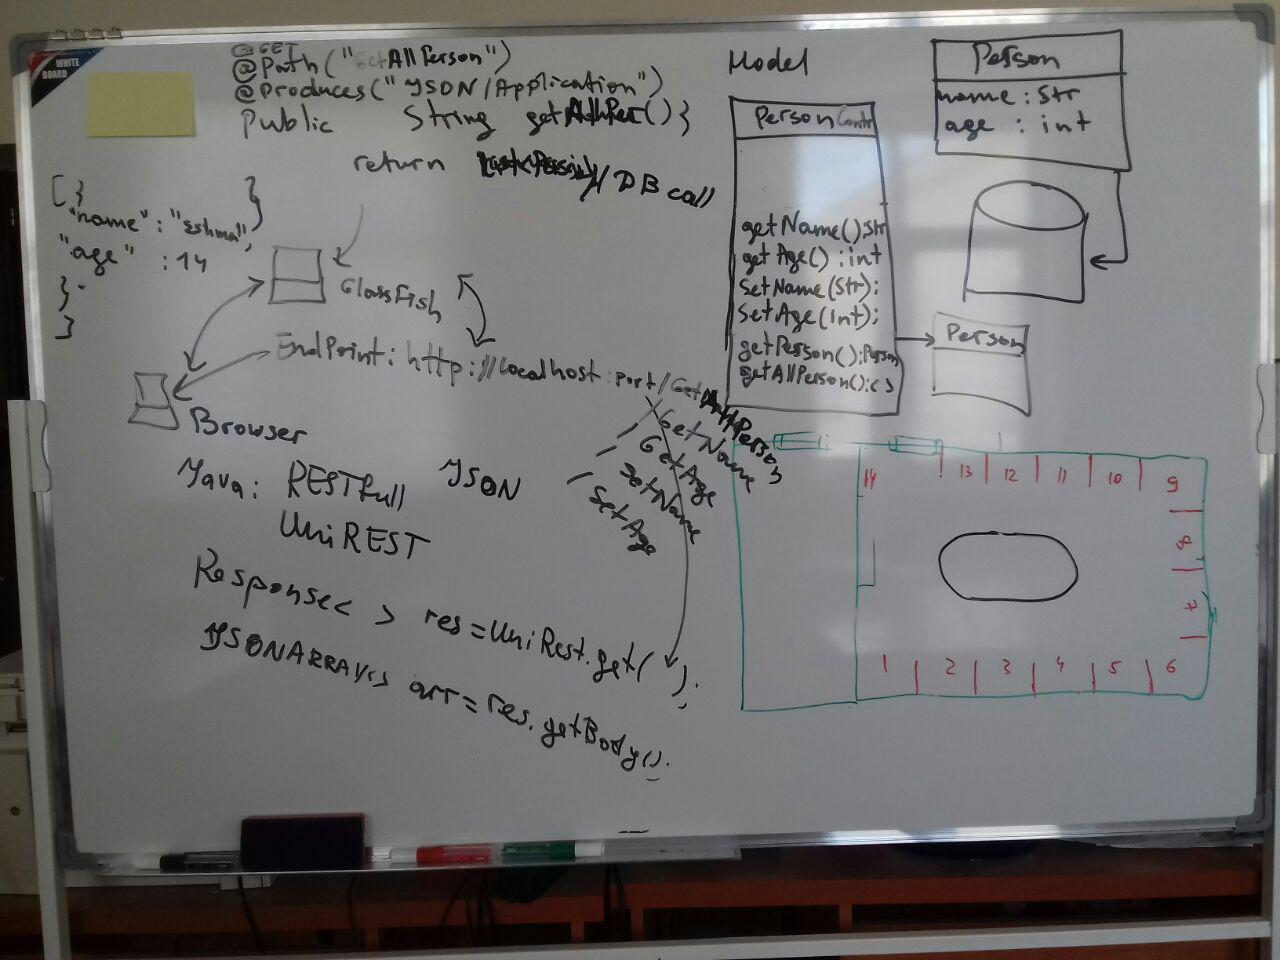 WHITE
BOARD
@GET
@Path("GetAllPerson")
@Produces("JSON/Application")
Public String getAllPer(){
return // DB call
[{
"name": "Eshmat",
"age" : 14
}
]
GlassFish
EndPoint: http://localhost:port/GetAllPerson
/ GetName
/ GetAge
/ SetName
/ SetAge
Browser
Java: RESTfull JSON
UniREST
Response< > res=UniRest.get( );
JSONARRAY<> arr=res.getBody();
Model
Person Contr
getName():Str
getAge() :int
SetName(Str);
SetAge(int);
getPerson():Person
getAllPerson():<>
Person
name : Str
age : int
Person
14 13 12 11 10 9
8
7
1 2 3 4 5 6